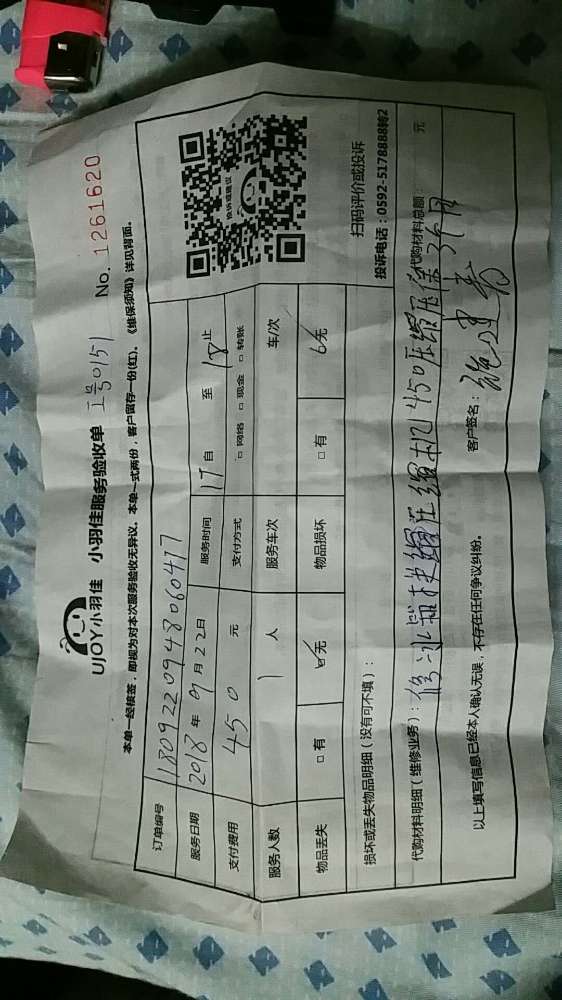 UJOY小羽佳 小羽佳服务验收单 工号0151 No. 1261620
本单一经核签，即视为对本次服务验收无异议。本单一式两份，客户留存一份(红)。《维保须知》详见背面。
订单编号 1809220948060417
服务日期 2018 年 09 月 22 日 服务时间 17 自 至 18 止
支付费用 450 元 支付方式 □ 网络 □ 现金 □ 转账
服务人数 1 人 服务车次 车/次
物品丢失 □ 有 □ 无 物品损坏 □ 有 □ 无
投诉或建议
扫码评价或投诉
投诉电话：0592-5178888转2
损坏或丢失物品明细（没有可不填）：
代购材料明细（维修业务）：修冰箱换压缩机450压缩机保3个月 代购材料总额： 元
以上填写信息已经本人确认无误，不存在任何争议纠纷。 客户签名：